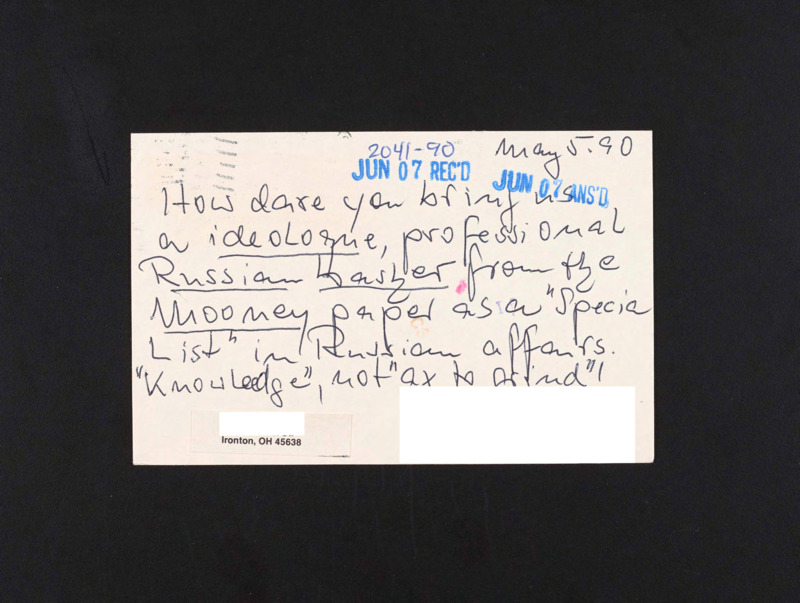 2041-90
May 5.90
JUN 07 REC'D
JUN 07 ANS'D
How dare you bring us
a ideologue, professional
Russian basher from the
Mooney paper as a "Specia
List" in Russian affairs.
"Knowledge", not "ax to grind"!
Ironton, OH 45638